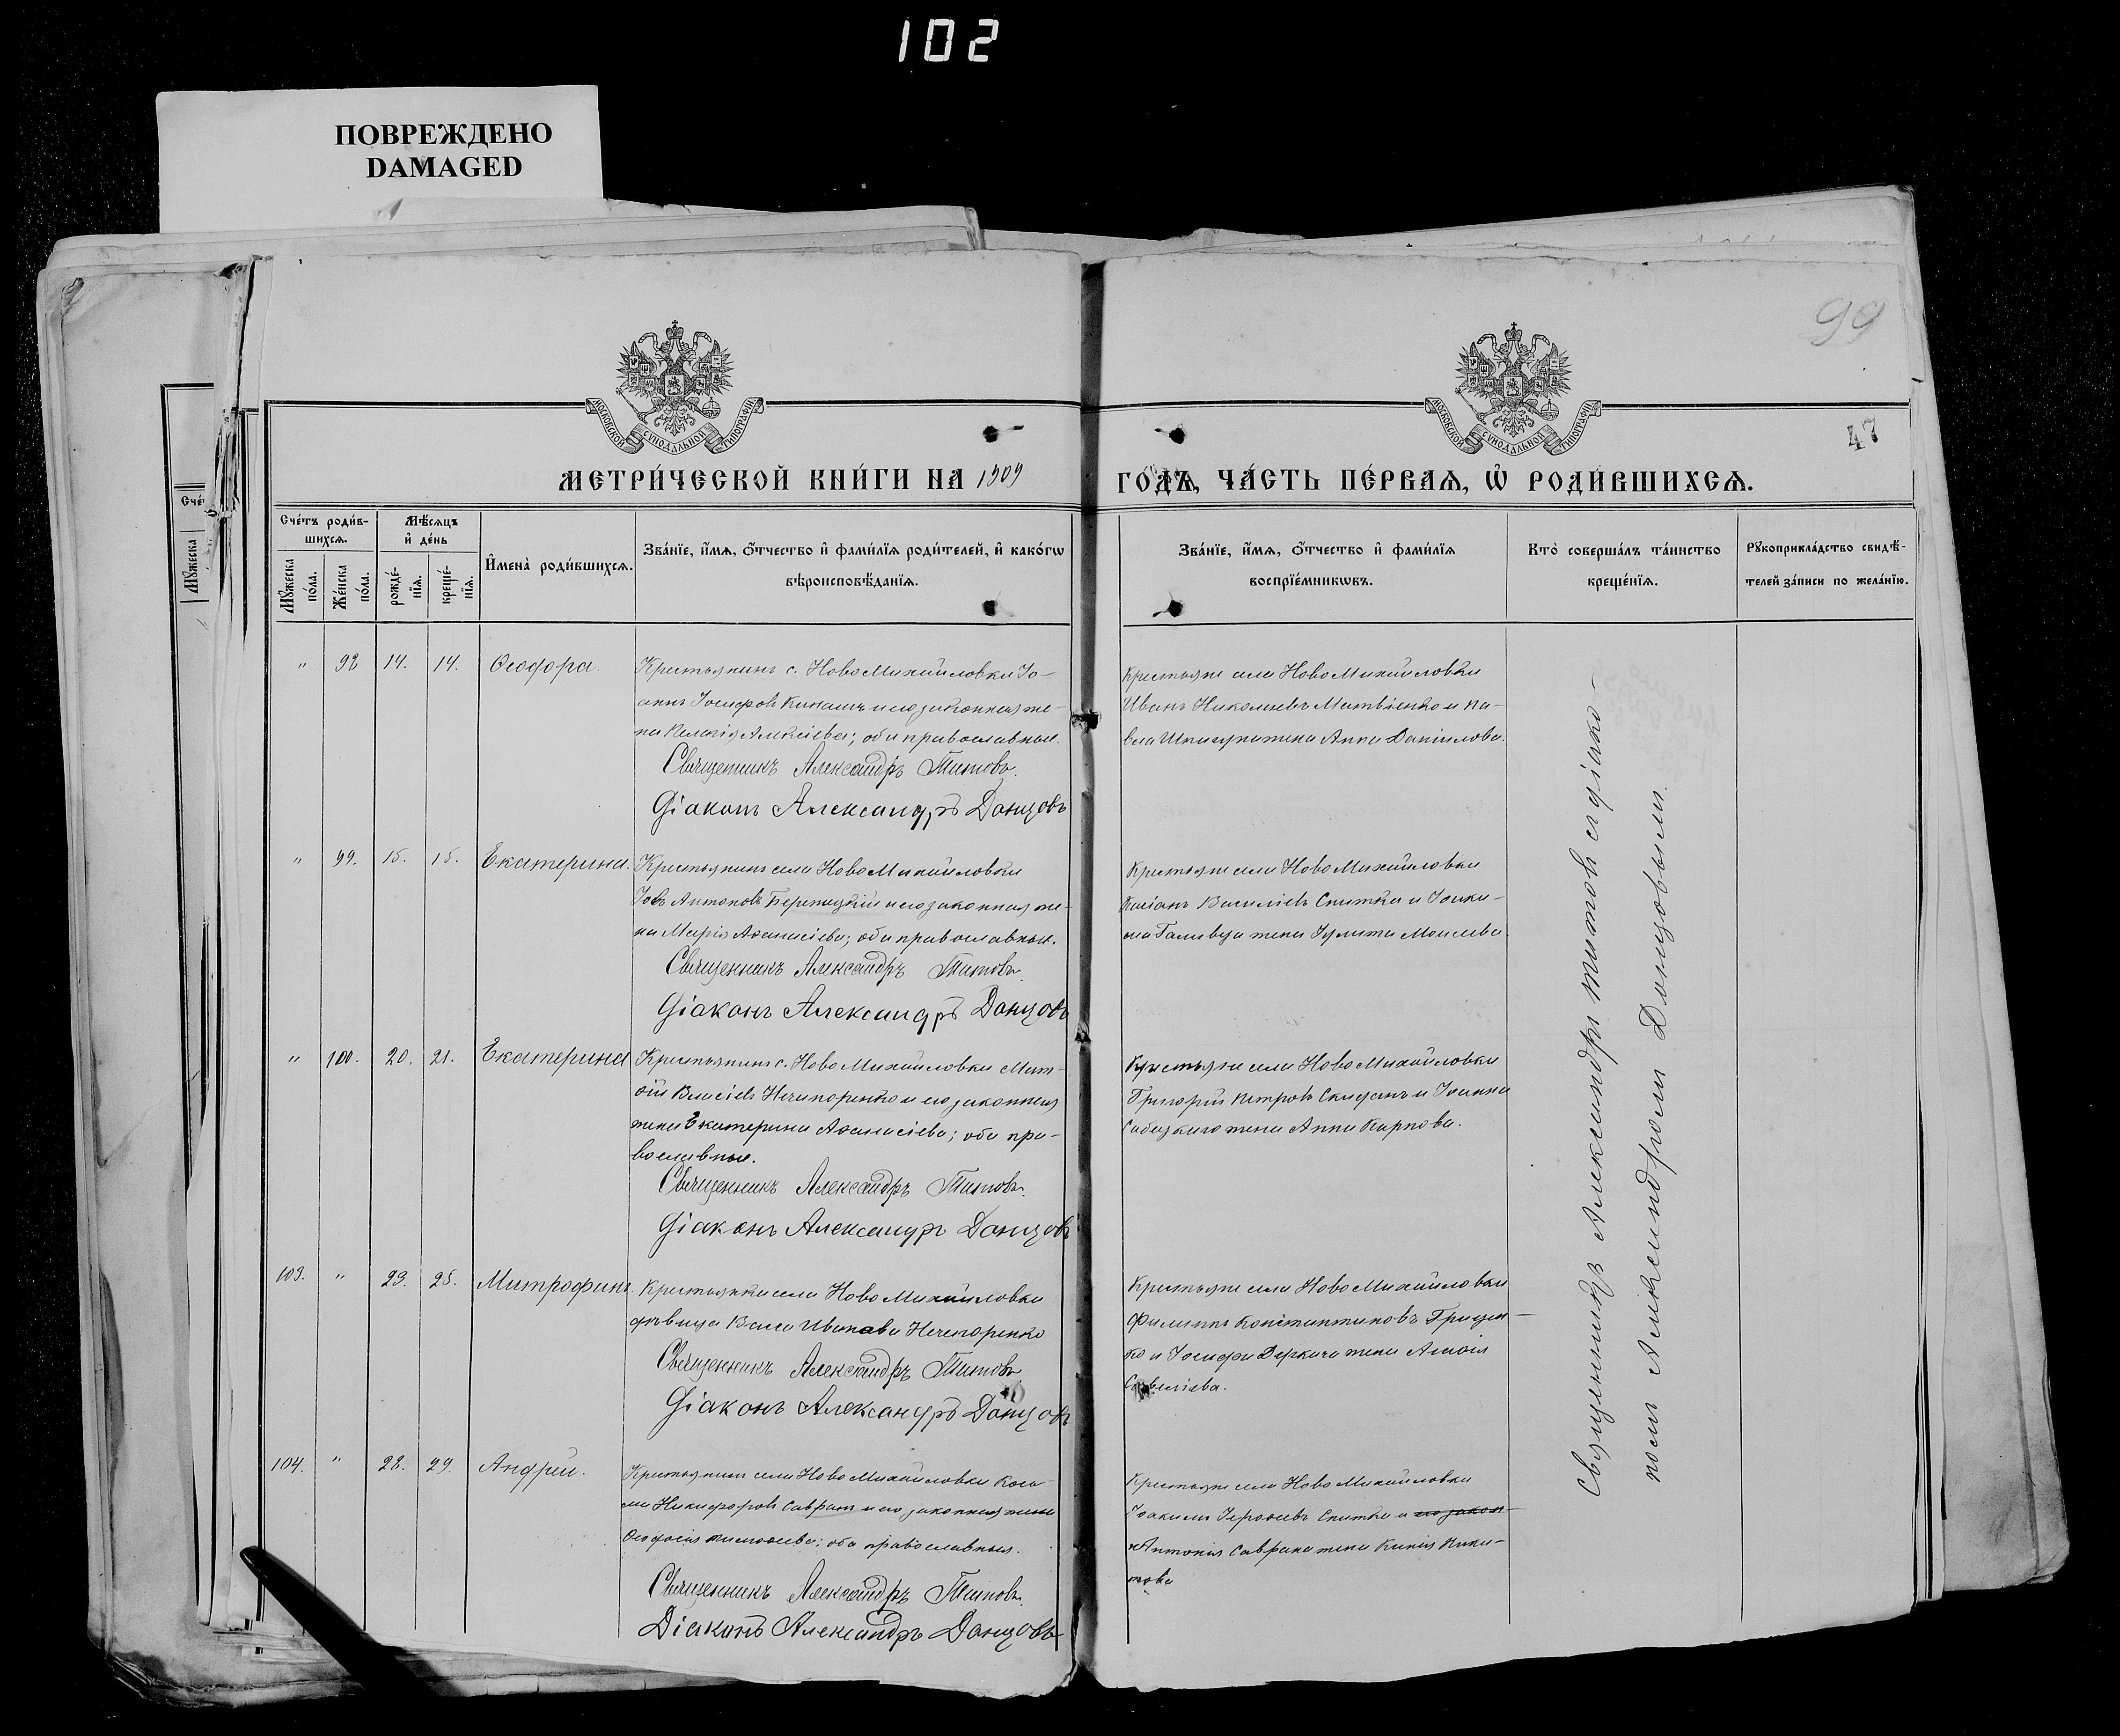 102
ПОВРЕЖДЕНО
DAMAGED
99
47
МОСКОВСКОЙ СѴНОДАЛЬНОЙ ТИПОГРАФІИ
МОСКОВСКОЙ СѴНОДАЛЬНОЙ ТИПОГРАФІИ
МЕТРИ́ЧЕСКОЙ КНИ́ГИ НА 1909 ГО́ДЪ, ЧА́СТЬ ПЕ́РВАѦ, Ѡ҆ РОДИ́ВШИХСѦ.
Сче́тъ роди́в-
шихсѧ.
Мꙋ́жеска по́ла.
Же́нска по́ла.
Мѣ́сѧцъ
и҆ де́нь
рожде́-
нїѧ.
креще́-
нїѧ.
И҆мена̀ роди́вшихсѧ.
Зва́нїе, и҆́мѧ, ѻ҆́тчество и҆ фами́лїѧ роди́телей, и҆ како́гѡ
вѣроисповѣ́данїѧ.
Зва́нїе, и҆́мѧ, ѻ҆́тчество и҆ фами́лїѧ
воспрїе́мникѡвъ.
Кто̀ соверша́лъ та́инство
креще́нїѧ.
Рꙋкоприкла́дство свидѣ́-
телей за́писи по жела́нїю.
" 98 14. 14. Ѳеодора.
Крестьянинъ с. Ново Михайловки Іо-
аннъ Іосифовъ и его законная же-
на Алексіева; оба православные.
Священникъ Александръ Титовъ.
Діаконъ Александръ Донцовъ
Крестьяне села Ново Михайловки
Иванъ Николаевъ Матвіенко и Па-
вла жена Анна Даніилова.
" 99. 15. 15. Екатерина.
Крестьянинъ села Ново Михайловки
Іовъ Антоновъ и его законная же-
на Марія Аѳанасіева; оба православные.
Священникъ Александръ Титовъ.
Діаконъ Александръ Донцовъ
Крестьяне села Ново Михайловки
Касіанъ Василіевъ Снитка и Іоаки-
ма жена Іулита Моисеева.
" 100. 20. 21. Екатерина
Крестьянинъ с. Ново Михайловки Мат-
ѳій Власіевъ Нечипоренко и его законная
жена Екатерина Аѳанасіева; оба пра-
вославные.
Священникъ Александръ Титовъ.
Діаконъ Александръ Донцовъ
Крестьяне села Ново Михайловки
Григорій Петровъ Скиданъ и Іоанна
жена Анна Карпова.
103. " 23. 25. Митрофанъ.
Крестьянка села Ново Михайловки
дѣвица Васса Иванова Нечепоренко
Священникъ Александръ Титовъ
Діаконъ Александръ Донцовъ
Крестьяне села Ново Михайловки
Филиппъ Константиновъ Грицен-
ко и Іосифа Деркача жена
Савеліева.
104. " 28. 29. Андрей.
Крестьянинъ села Ново Михайловки Косьма
Никифоровъ Савранъ и его законная жена
Ѳеодосія Тимоѳеева; оба православные.
Священникъ Александръ Титовъ.
Діаконъ Александръ Донцовъ
Крестьяне села Ново Михайловки
Іоакимъ Іероѳеевъ Снитка и его закон-
Антонія Саврана жена Ники-
това
Священникъ Александръ Титовъ съ діако-
номъ Александромъ Донцовымъ.